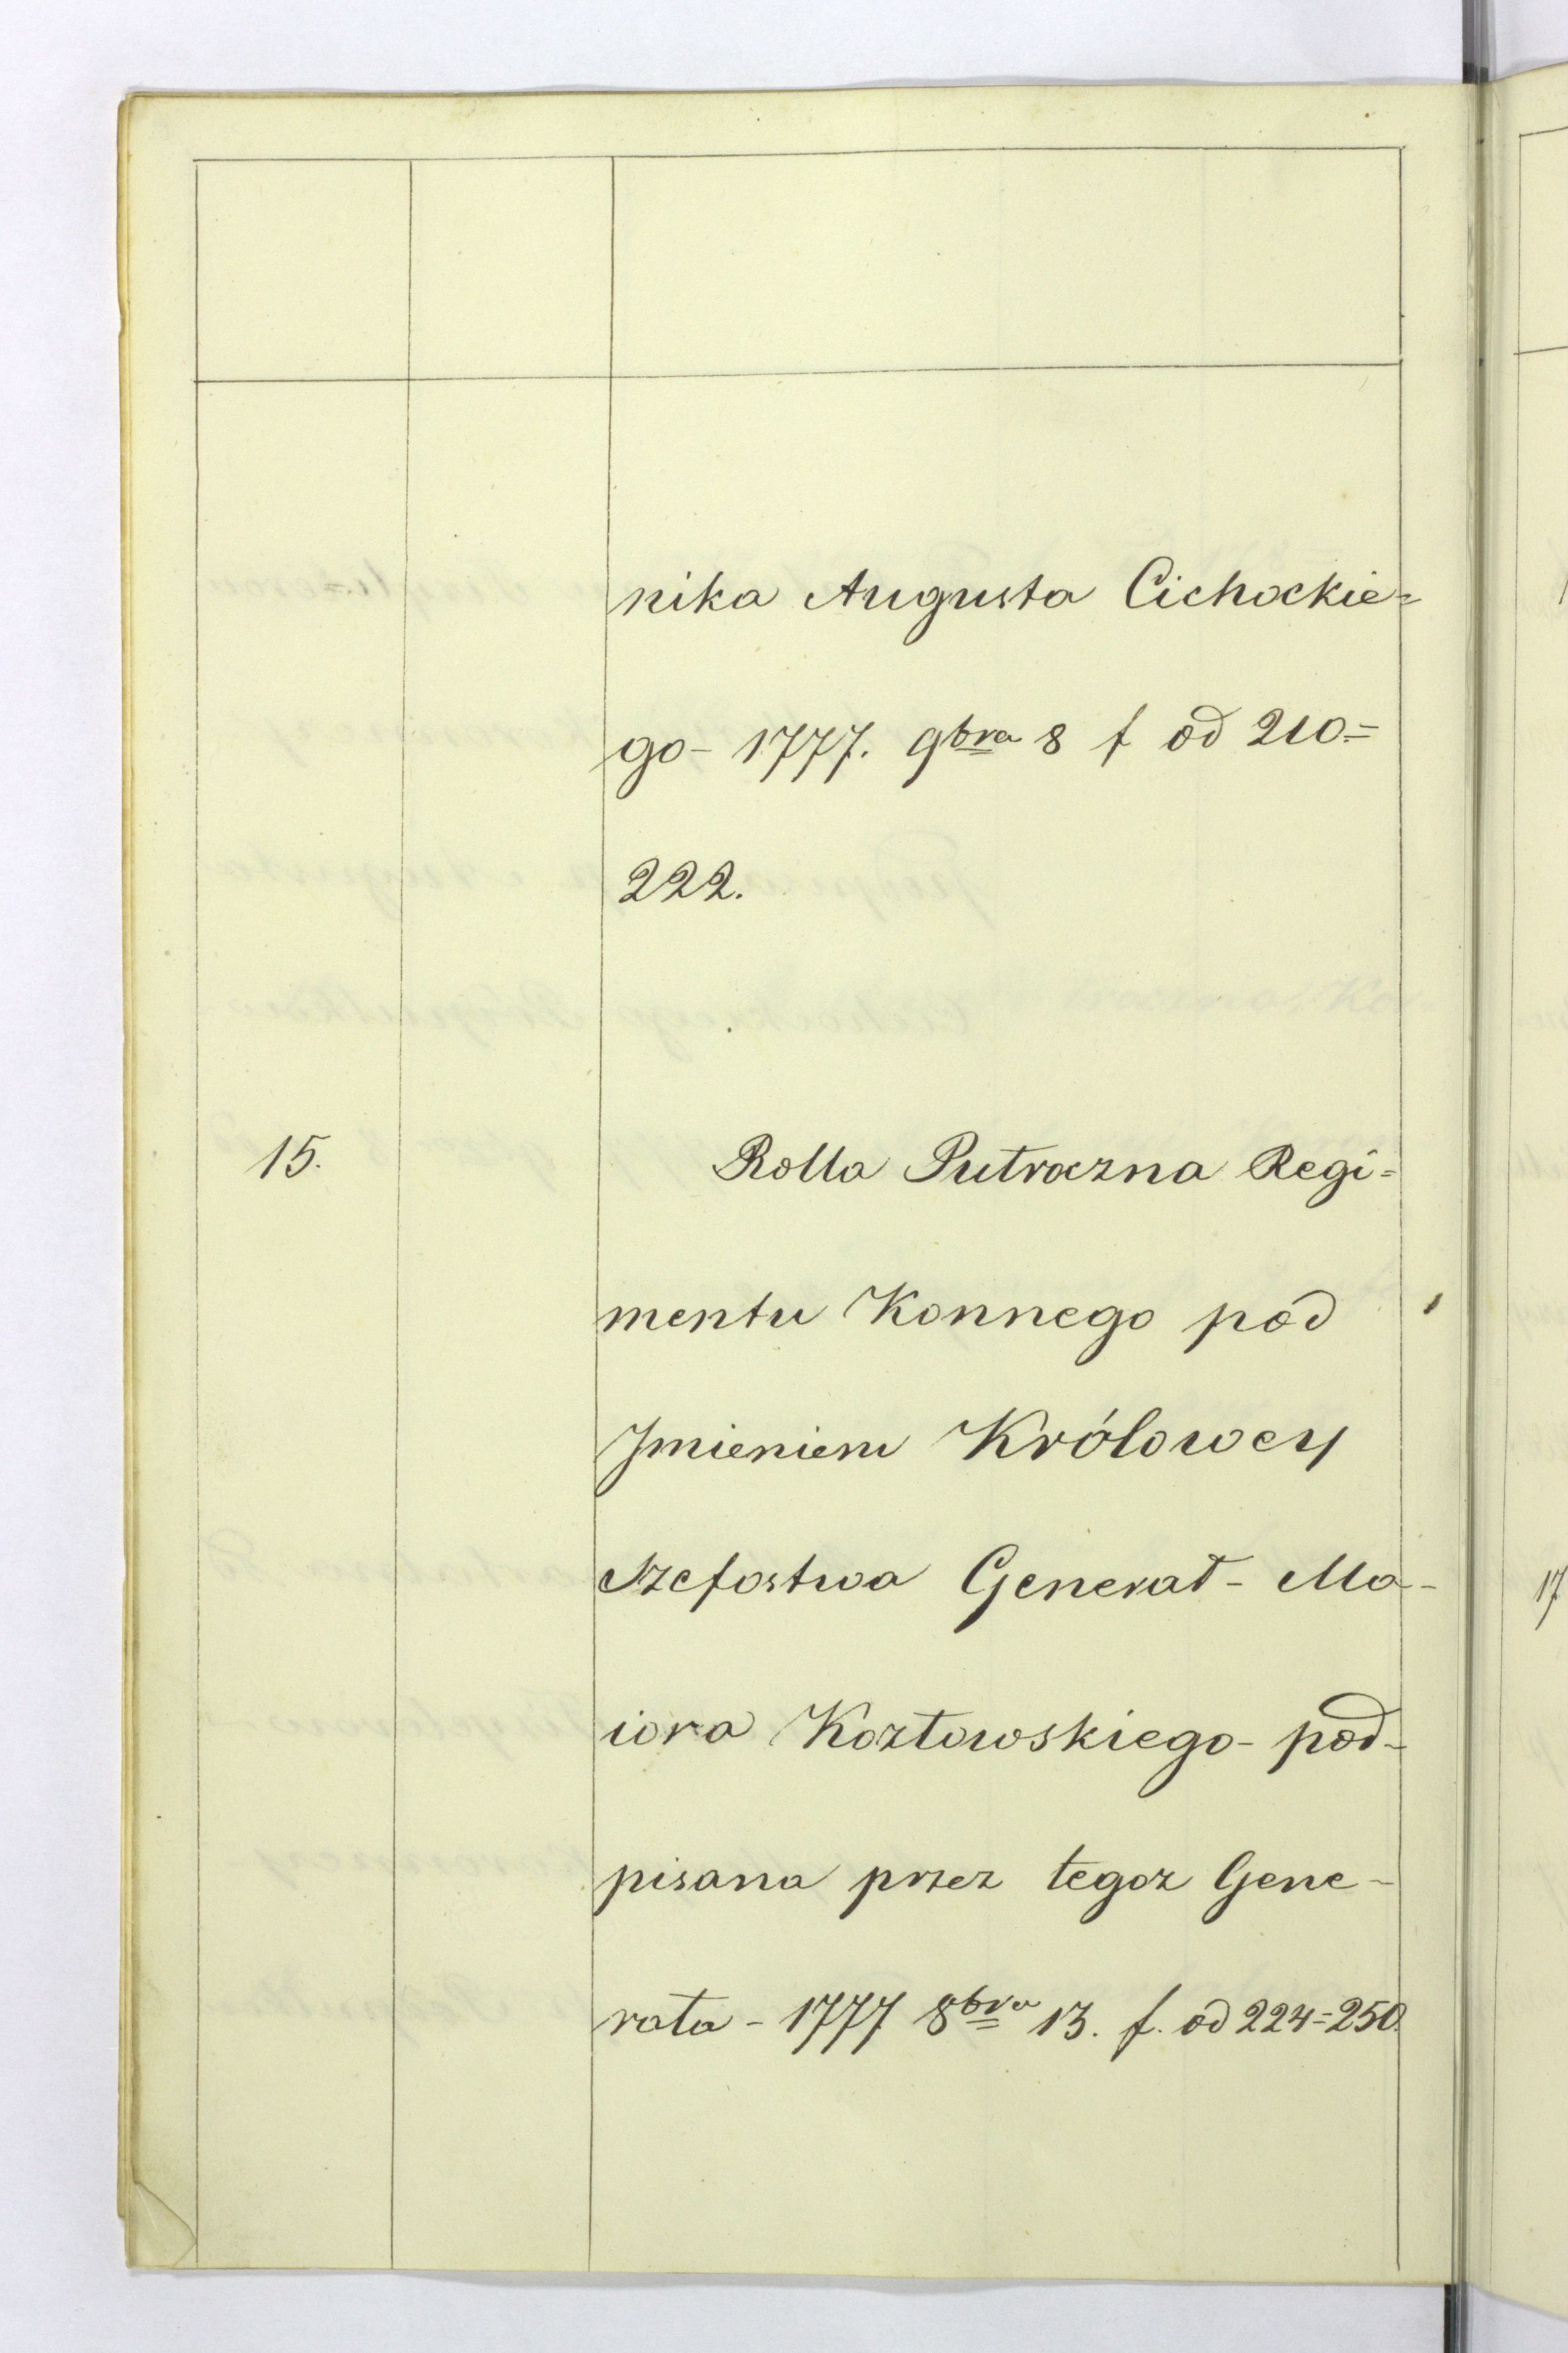 nika Augusta Cichockie=
go - 1777. 9bra 8 f od 210=
222.
15. Rolla Putroczna Regi=
mentu Konnego pod
Jmieniem Królowey
Szefostwa Generał - Ma-
iora Kozłowskiego - pod-
pisana przez tegoz Gene-
rała - 1777 8bra 13. f. od 224=250.
17